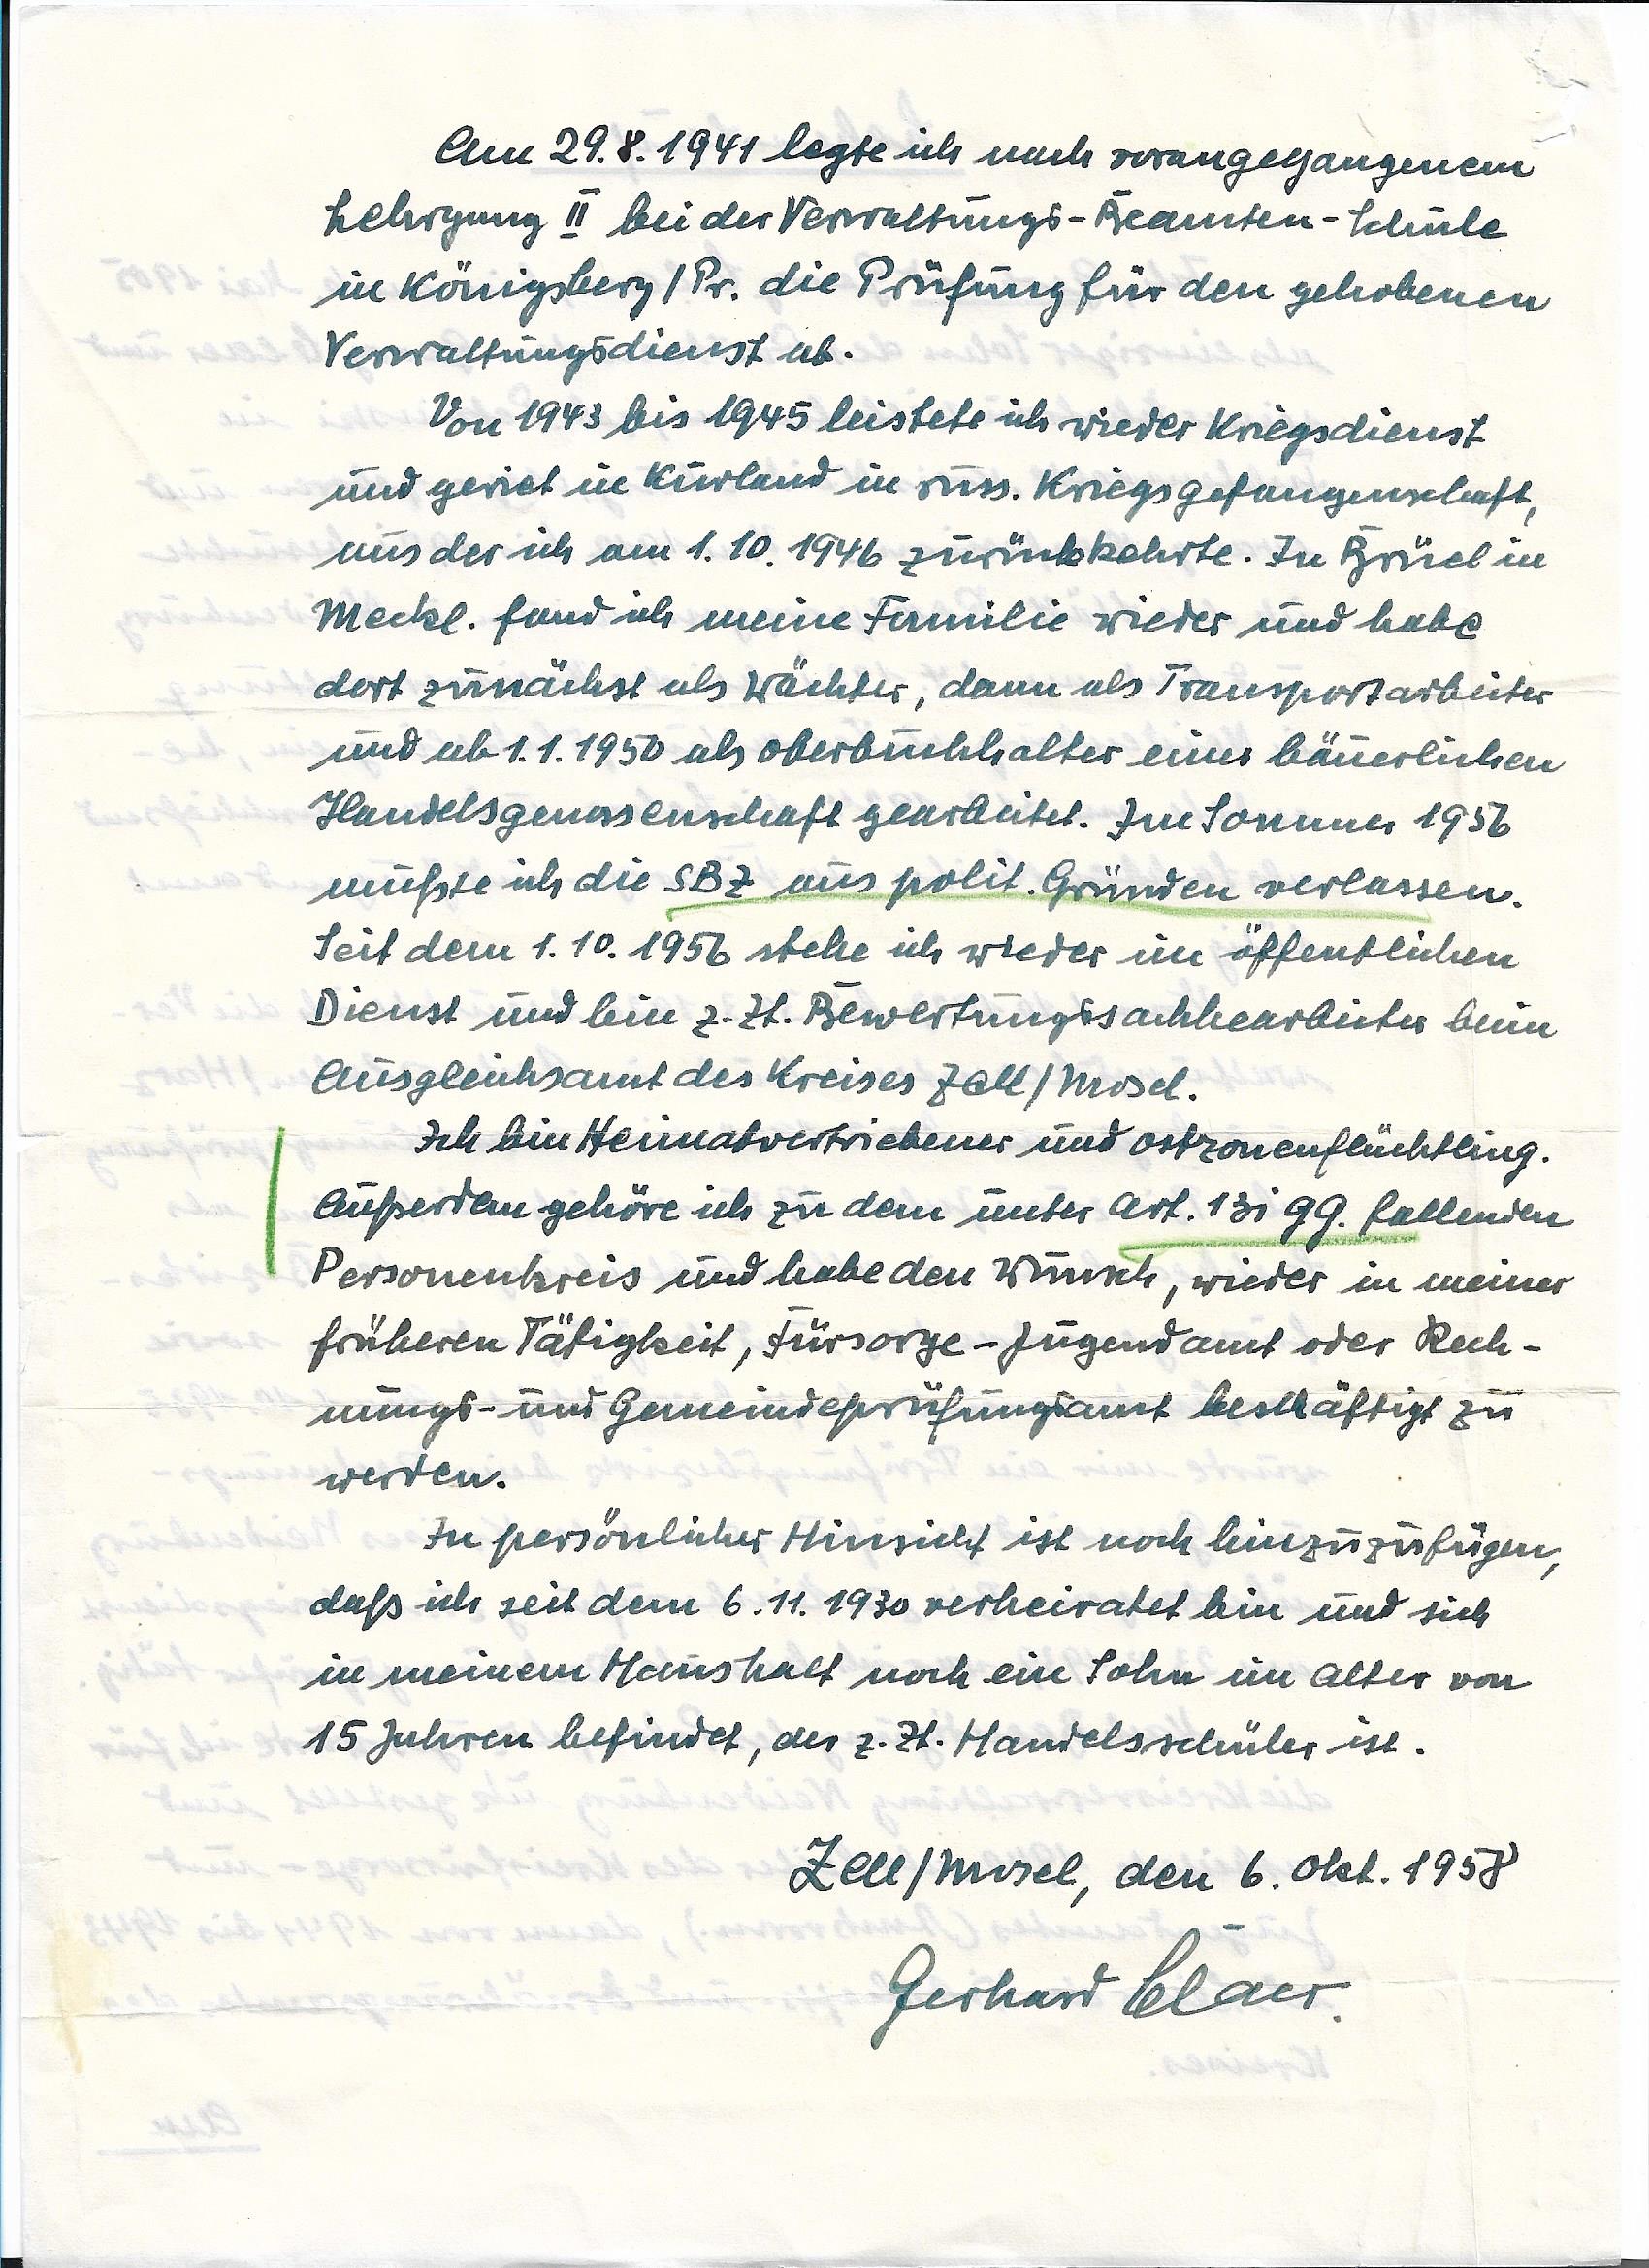 Am 29.8.1941 legte ich nach vorangegangenem
Lehrgang II bei der Verwaltungs-Beamten-Schule
in Königsberg/Pr. die Prüfung für den gehobenen
Verwaltungsdienst ab.
Von 1943 bis 1945 leistete ich wieder Kriegsdienst
und geriet in Kurland in russ. Kriegsgefangenschaft,
aus der ich am 1.10.1946 zurückkehrte. In Brüel in
Meckl. fand ich meine Familie wieder und habe
dort zunächst als Wächter, dann als Transportarbeiter
und ab 1.1.1950 als Oberbuchhalter einer bäuerlichen
Handelsgenossenschaft gearbeitet. Im Sommer 1956
mußte ich die SBZ aus polit. Gründen verlassen.
Seit dem 1.10.1956 stehe ich wieder im öffentlichen
Dienst und bin z.Zt. Bewertungssachbearbeiter beim
Ausgleichsamt des Kreises Zell/Mosel.
Ich bin Heimatvertriebener und Ostzonenflüchtling.
Außerdem gehöre ich zu dem unter Art. 131 GG. fallenden
Personenkreis und habe den Wunsch, wieder in meiner
früheren Tätigkeit, Fürsorge-Jugendamt oder Rech-
nungs- und Gemeindeprüfungsamt beschäftigt zu
werden.
In persönlicher Hinsicht ist noch hinzuzufügen,
daß ich seit dem 6.11.1930 verheiratet bin und sich
in meinem Haushalt noch ein Sohn im Alter von
15 Jahren befindet, der z.Zt. Handelsschüler ist.
Zell/Mosel, den 6. Okt. 1958
Gerhard Claer.